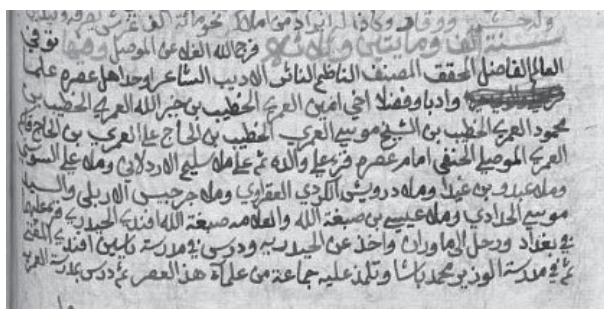 سنة الف ومايتين وثلاثه فرج الله الغلا عن الموصل وفيها توفي
العالم الفاضل المحقق المصنف الناظم الناثر الاديب الشاعر اوحد اهل عصره علما
وادبا وفضلا اخي امين العمري الخطيب بن خير الله العمري الخطيب بن
محمود العمري الخطيب بن الشيخ موسى العمري الخطيب بن الحاج علي العمري بن الحاج قاسم
العمري الموصلي الحنفي امام عصره قرء علي والده ثم علي ملا سليم الاردلاني وملا علي السوسي
وملا عبدو بن غيدا وملا درويش الكردي العقراوي وملا جرجيس الاربلي والسيد
موسى الحدادي وملا عيسى بن صبغة الله والعلامه صبغة الله افندي الحيدري
في بغداد ورحل الى ماوران واخذ عن الحيدريه ودرس في مدرسة ياسين افندي المفتي
ثم في مدرسة الوزير محمد باشا وتلمذ عليه جماعة من علماء هذا العصر ثم درس بمدرسة